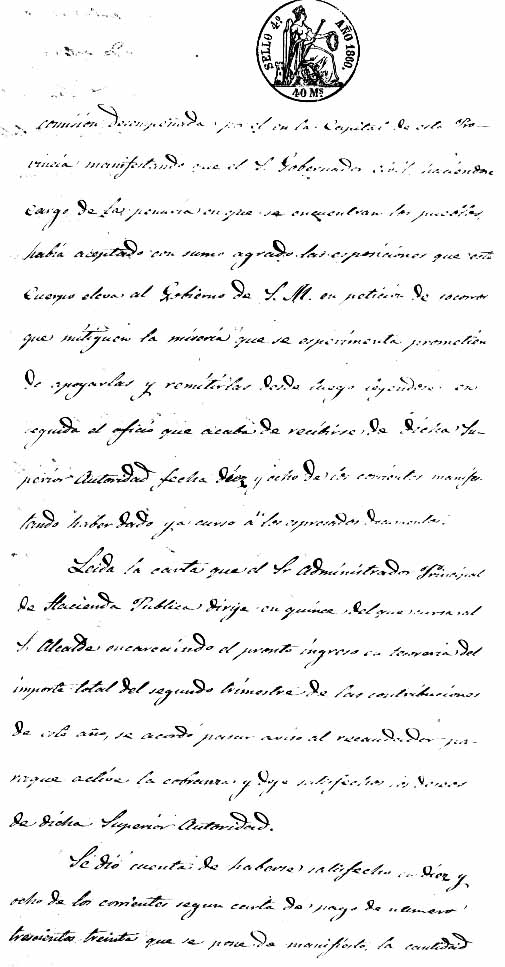 SELLO 4º AÑO 1860.
40 Mˢ
comision desempeñada por el en la Capital de esta Pro-
vincia manifestando que el S. Gobernador civil haciendose
cargo de las penuria en que se encuentran los pueblos,
habia aceptado con sumo agrado las esposiciones que este
Cuerpo eleva al Gobierno de S. M. en peticion de socorros
que mitiguen la miseria que se esperimenta prometien
do apoyarlas y remitirlas desde luego leyendose en
seguida el oficio que acaba de recibirse de dicha Su-
perior Autoridad fecha diez y ocho de los corrientes manifes-
tando haber dado ya curso á los espresados documentos.
Leida la carta que el Sr Administrador Principal
de Hacienda Publica dirije en quince del que cursa al
S. Alcalde encareciendo el pronto ingreso en tesoreria del
importe total del segundo trimestre de las contribuciones
de este año, se acordó pasar aviso al recaudador pa-
raque active la cobranza y deje satisfechos los deseos
de dicha Superior Autoridad.
Se dió cuenta de haberse satisfecho en diez y
ocho de los corrientes segun carta de pago de numero
trescientos treinta que se pone de manifiesto, la cantidad